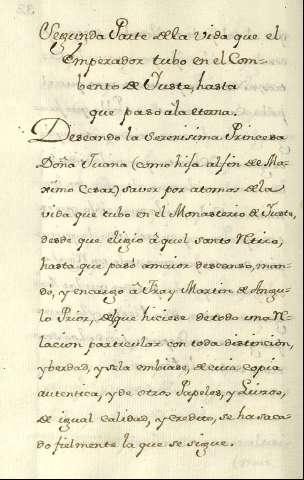 Segunda Parte de la vida que el
Emperador tubo en el Com-
bento de Juste, hasta
que paso âla eterna.
Deseando la Serenisima Princesa
Doña Juana (como hija al fin de Ma-
ximo Cesar) saver por atomos de la
vida que tubo en el Monasterio de Juste,
desde que eligio âquel santo Retiro,
hasta que pasó amaior descanso, man-
dó, y encargo â Fray Martin de Angu-
lo Prior, de que hiciese de todo una Re-
lacion particular con toda distincion,
y berdad, y sela embiase, de cuia copia
autentica, y de otros Papeles, y Livros,
de igual calidad, y credito, se ha saca-
do fielmente la que se sigue.